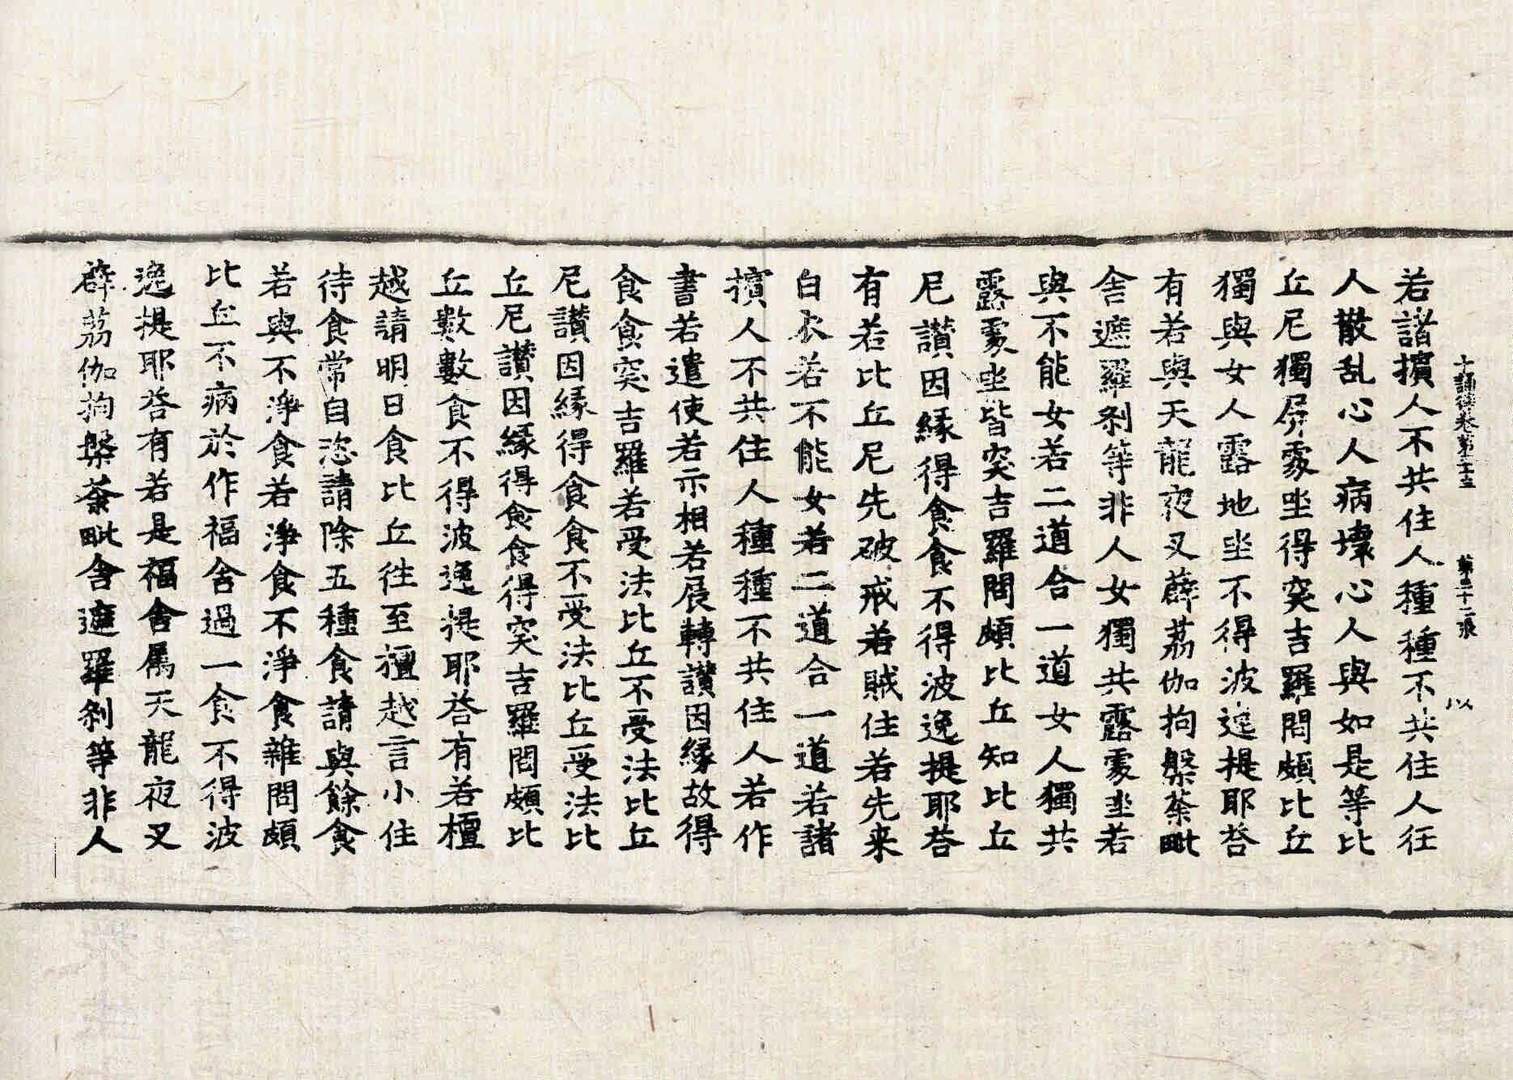 十誦律卷第五十三　第二十二張　以
若諸擯人不共住人種種不共住人狂
人散乱心人病壞心人與如是等比
丘尼獨屏處坐得突吉羅問頗比丘
獨與女人露地坐不得波逸提耶答
有若與天龍夜叉薜荔伽拘槃荼毗
舍遮羅剎等非人女獨共露處坐若
與不能女若二道合一道女人獨共
露處坐皆突吉羅問頗比丘知比丘
尼讃因緣得食食不得波逸提耶答
有若比丘尼先破戒若賊住若先来
白衣若不能女若二道合一道若諸
擯人不共住人種種不共住人若作
書若遣使若示相若展轉讃因緣故得
食食突吉羅若受法比丘不受法比丘
尼讃因緣得食食不受法比丘受法比
丘尼讃因緣得食食得突吉羅問頗比
丘數數食不得波逸提耶答有若檀
越請明日食比丘往至檀越言小住
待食常自恣請除五種食請與餘食
若與不淨食若淨食不淨食雜問頗
比丘不病於作福舍過一食不得波
逸提耶答有若是福舍屬天龍夜叉
薜荔伽拘槃荼毗舍遮羅剎等非人